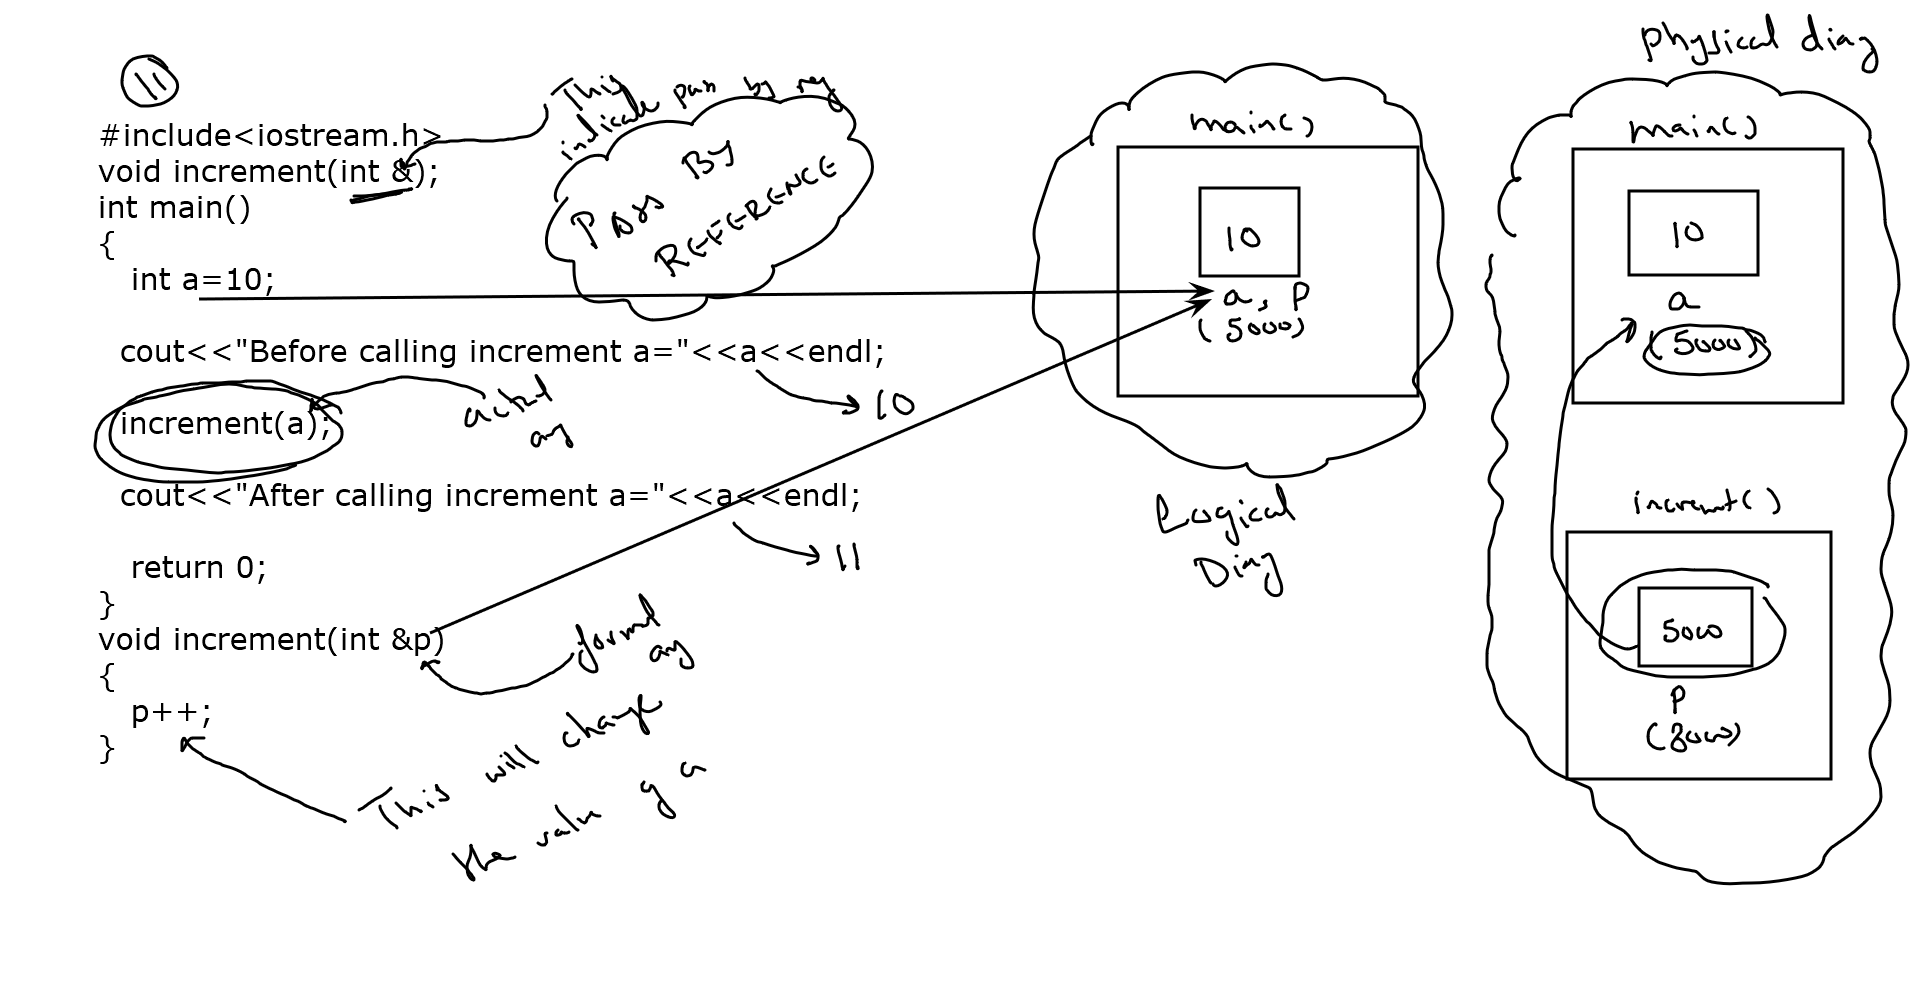 11
#include<iostream.h>
void increment(int &);
int main()
{
int a=10;
cout<<"Before calling increment a="<<a<<endl;
increment(a);
cout<<"After calling increment a="<<a<<endl;
return 0;
}
void increment(int &p)
{
p++;
}
This
indicate pass by ref
PASS BY
REFERENCE
10
actual
arg
11
formal
arg
This will change
the value of a
main()
10
a, p
(5000)
Logical
Diag
Physical diag
main()
10
a
(5000)
increment()
5000
p
(8000)